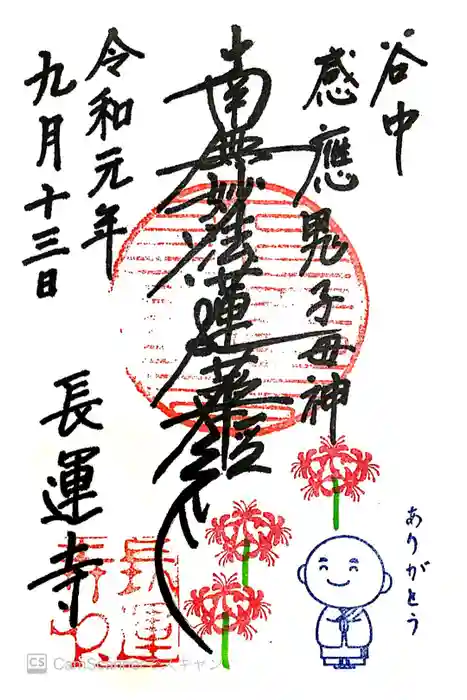 谷中
感應鬼子母神
南無妙法蓮華経
令和元年
九月十三日
長運寺
ありがとう
長運
CS CamScanner でスキャン